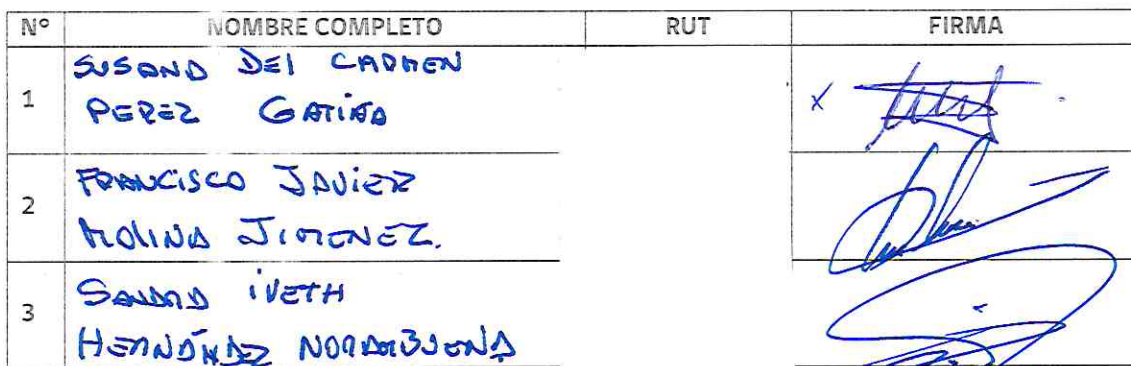 Nº NOMBRE COMPLETO RUT FIRMA
1
SUSANA DEL CARMEN
PEREZ GATICA
X
2
FRANCISCO JAVIER
MOLINA JIMENEZ.
3
SANDRA IVETH
HERNÁNDEZ NORAMBUENA